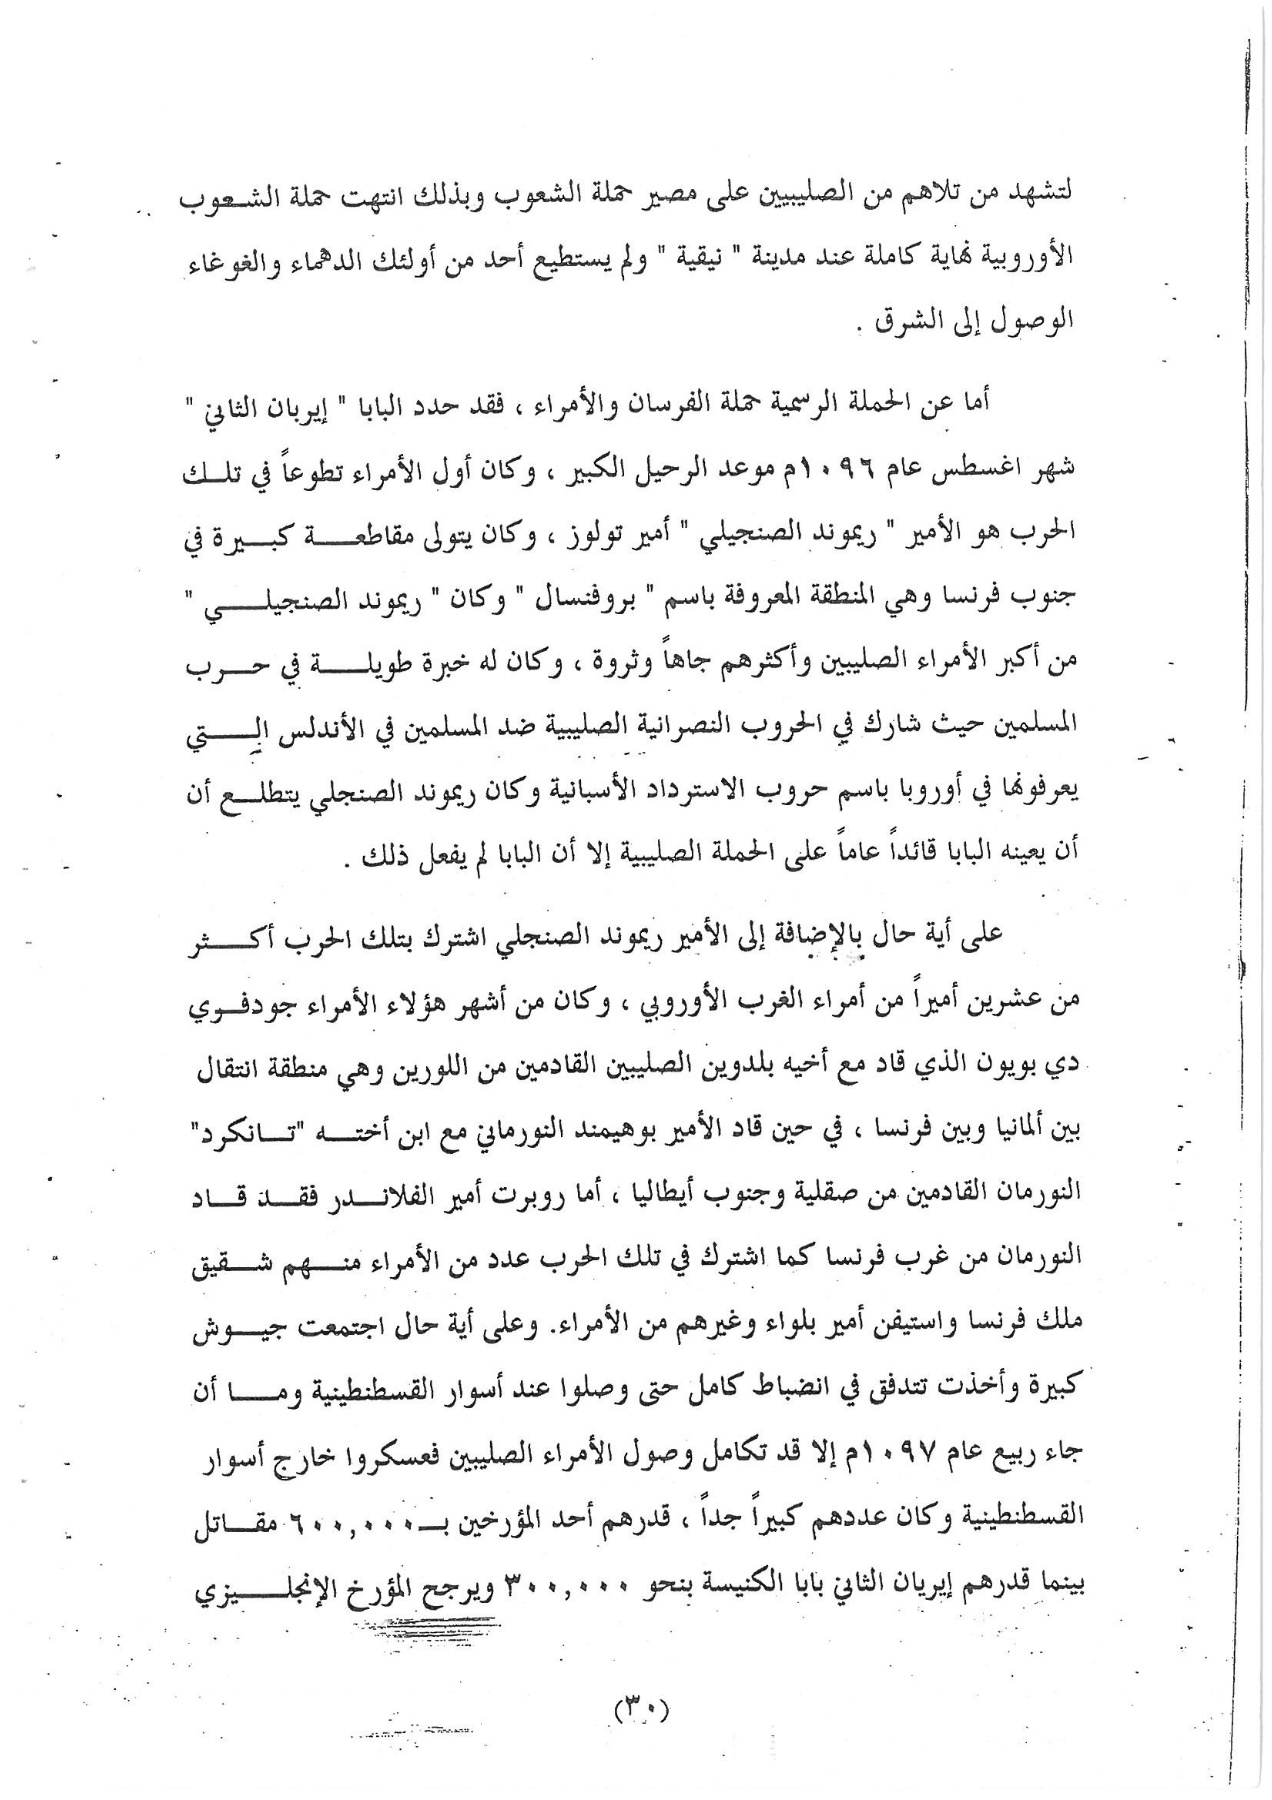 لتشهد من تلاهم من الصليبيين على مصير حملة الشعوب وبذلك انتهت حملة الشعوب
الأوروبية نهاية كاملة عند مدينة " نيقية " ولم يستطيع أحد من أولئك الدهماء والغوغاء
الوصول إلى الشرق .
أما عن الحملة الرسمية حملة الفرسان والأمراء ، فقد حدد البابا " إيربان الثاني "
شهر اغسطس عام ١٠٩٦م موعد الرحيل الكبير ، وكان أول الأمراء تطوعاً في تلك
الحرب هو الأمير " ريموند الصنجيلي " أمير تولوز ، وكان يتولى مقاطعة كبيرة في
جنوب فرنسا وهي المنطقة المعروفة باسم " بروفنسال " وكان " ريموند الصنجيلي "
من أكبر الأمراء الصليبين وأكثرهم جاهاً وثروة ، وكان له خبرة طويلة في حرب
المسلمين حيث شارك في الحروب النصرانية الصليبية ضد المسلمين في الأندلس التي
يعرفونها في أوروبا باسم حروب الاسترداد الأسبانية وكان ريموند الصنجلي يتطلع أن
أن يعينه البابا قائداً عاماً على الحملة الصليبية إلا أن البابا لم يفعل ذلك .
على أية حال بالإضافة إلى الأمير ريموند الصنجلي اشترك بتلك الحرب أكثر
من عشرين أميراً من أمراء الغرب الأوروبي ، وكان من أشهر هؤلاء الأمراء جودفوي
دي بويون الذي قاد مع أخيه بلدوين الصليبين القادمين من اللورين وهي منطقة انتقال
بين ألمانيا وبين فرنسا ، في حين قاد الأمير بوهيمند النورماني مع ابن أخته "تانكرد"
النورمان القادمين من صقلية وجنوب أيطاليا ، أما روبرت أمير الفلاندر فقد قاد
النورمان من غرب فرنسا كما اشترك في تلك الحرب عدد من الأمراء منهم شقيق
ملك فرنسا واستيفن أمير بلواء وغيرهم من الأمراء. وعلى أية حال اجتمعت جيوش
كبيرة وأخذت تتدفق في انضباط كامل حتى وصلوا عند أسوار القسطنطينية وما أن
جاء ربيع عام ١٠٩٧م إلا قد تكامل وصول الأمراء الصليبين فعسكروا خارج أسوار
القسطنطينية وكان عددهم كبيراً جداً ، قدرهم أحد المؤرخين بـ٦٠٠,٠٠٠ مقاتل
بينما قدرهم إيريان الثاني بابا الكنيسة بنحو ٣٠٠,٠٠٠ ويرجح المؤرخ الإنجليزي
(٣٠)